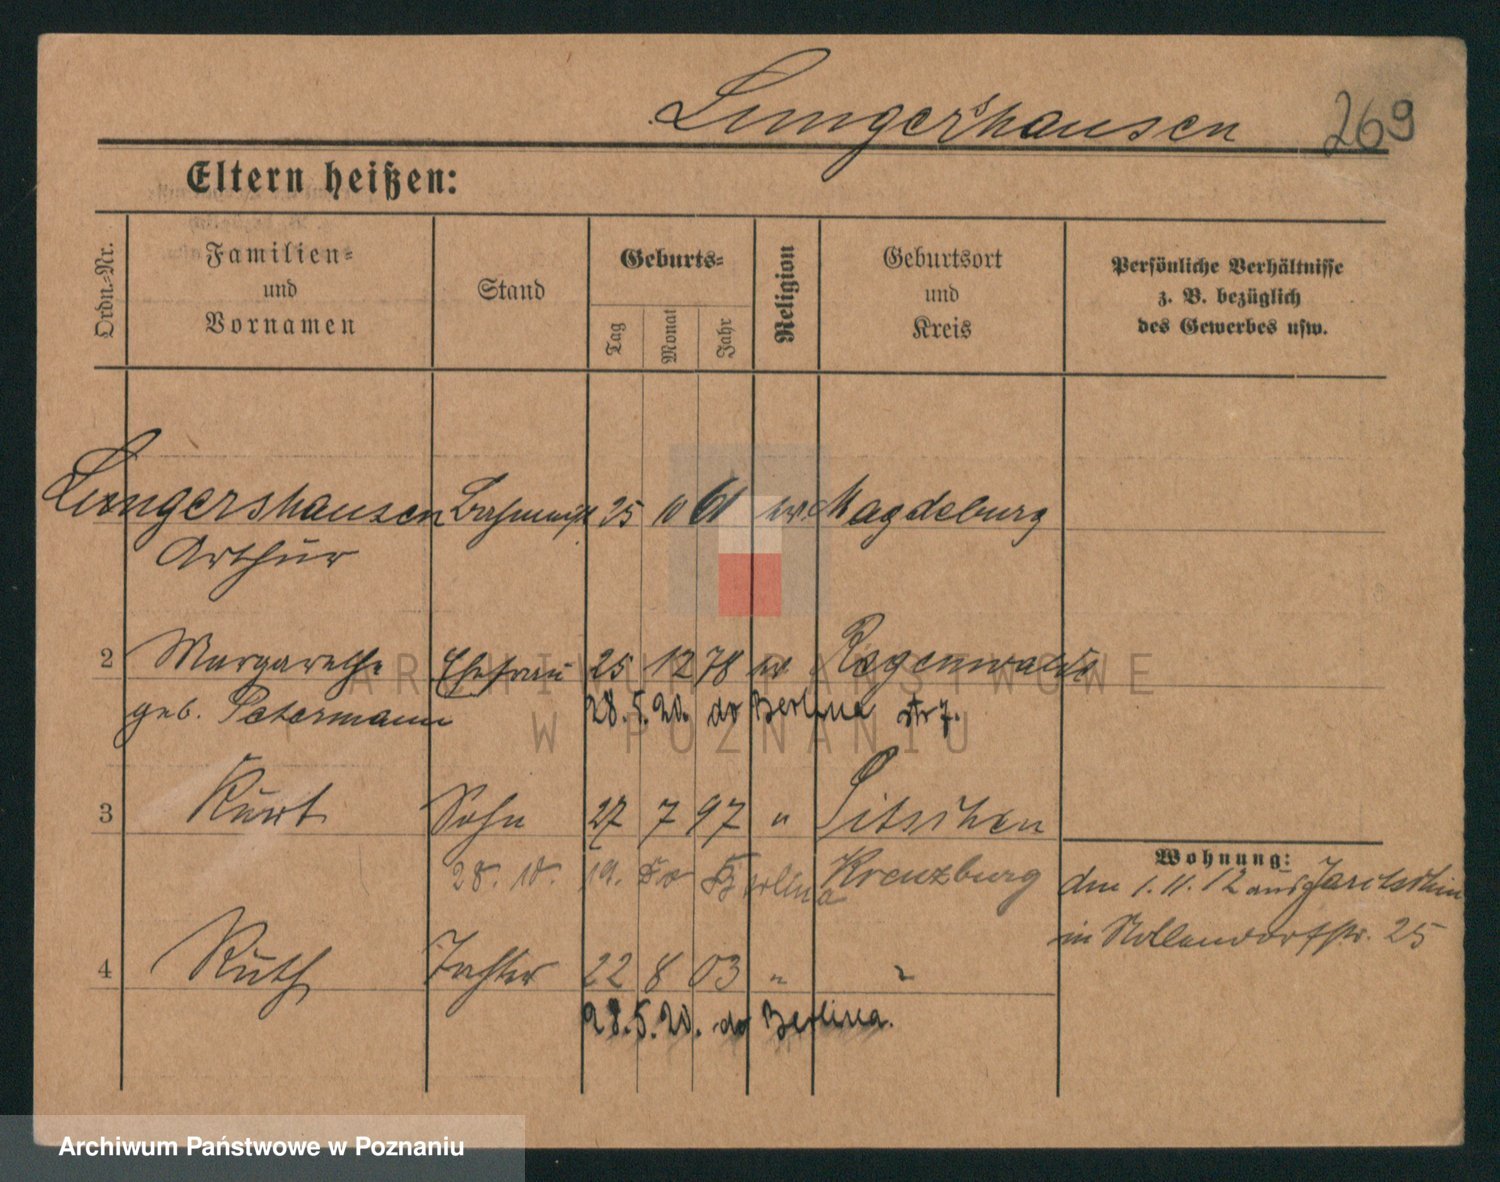 Lungershausen 269
Eltern heißen:
Ordn.-Nr.
Familien-
und
Vornamen
Stand
Geburts-
Tag
Monat
Jahr
Religion
Geburtsort
und
Kreis
Persönliche Verhältnisse
z. B. bezüglich
des Gewerbes usw.
Lungershausen 25 10 61 ev. Magdeburg
Arthur
2 Margarethe Ehefrau 25 12 78 ev Regenwalde
geb. Petermann 28.5.20. do Berlina str 7.
3 Kurt Sohn 27 7 97 " Pitschen
28. 10. 19. do Berlina Kreuzburg
Wohnung:
den 1. 11. 12 aus
in Nollendorfstr. 25
4 Ruth Tochter 22 8 03 " "
28.5.20. do Berlina.
ARCHIWUM PAŃSTWOWE
W POZNANIU
Archiwum Państwowe w Poznaniu